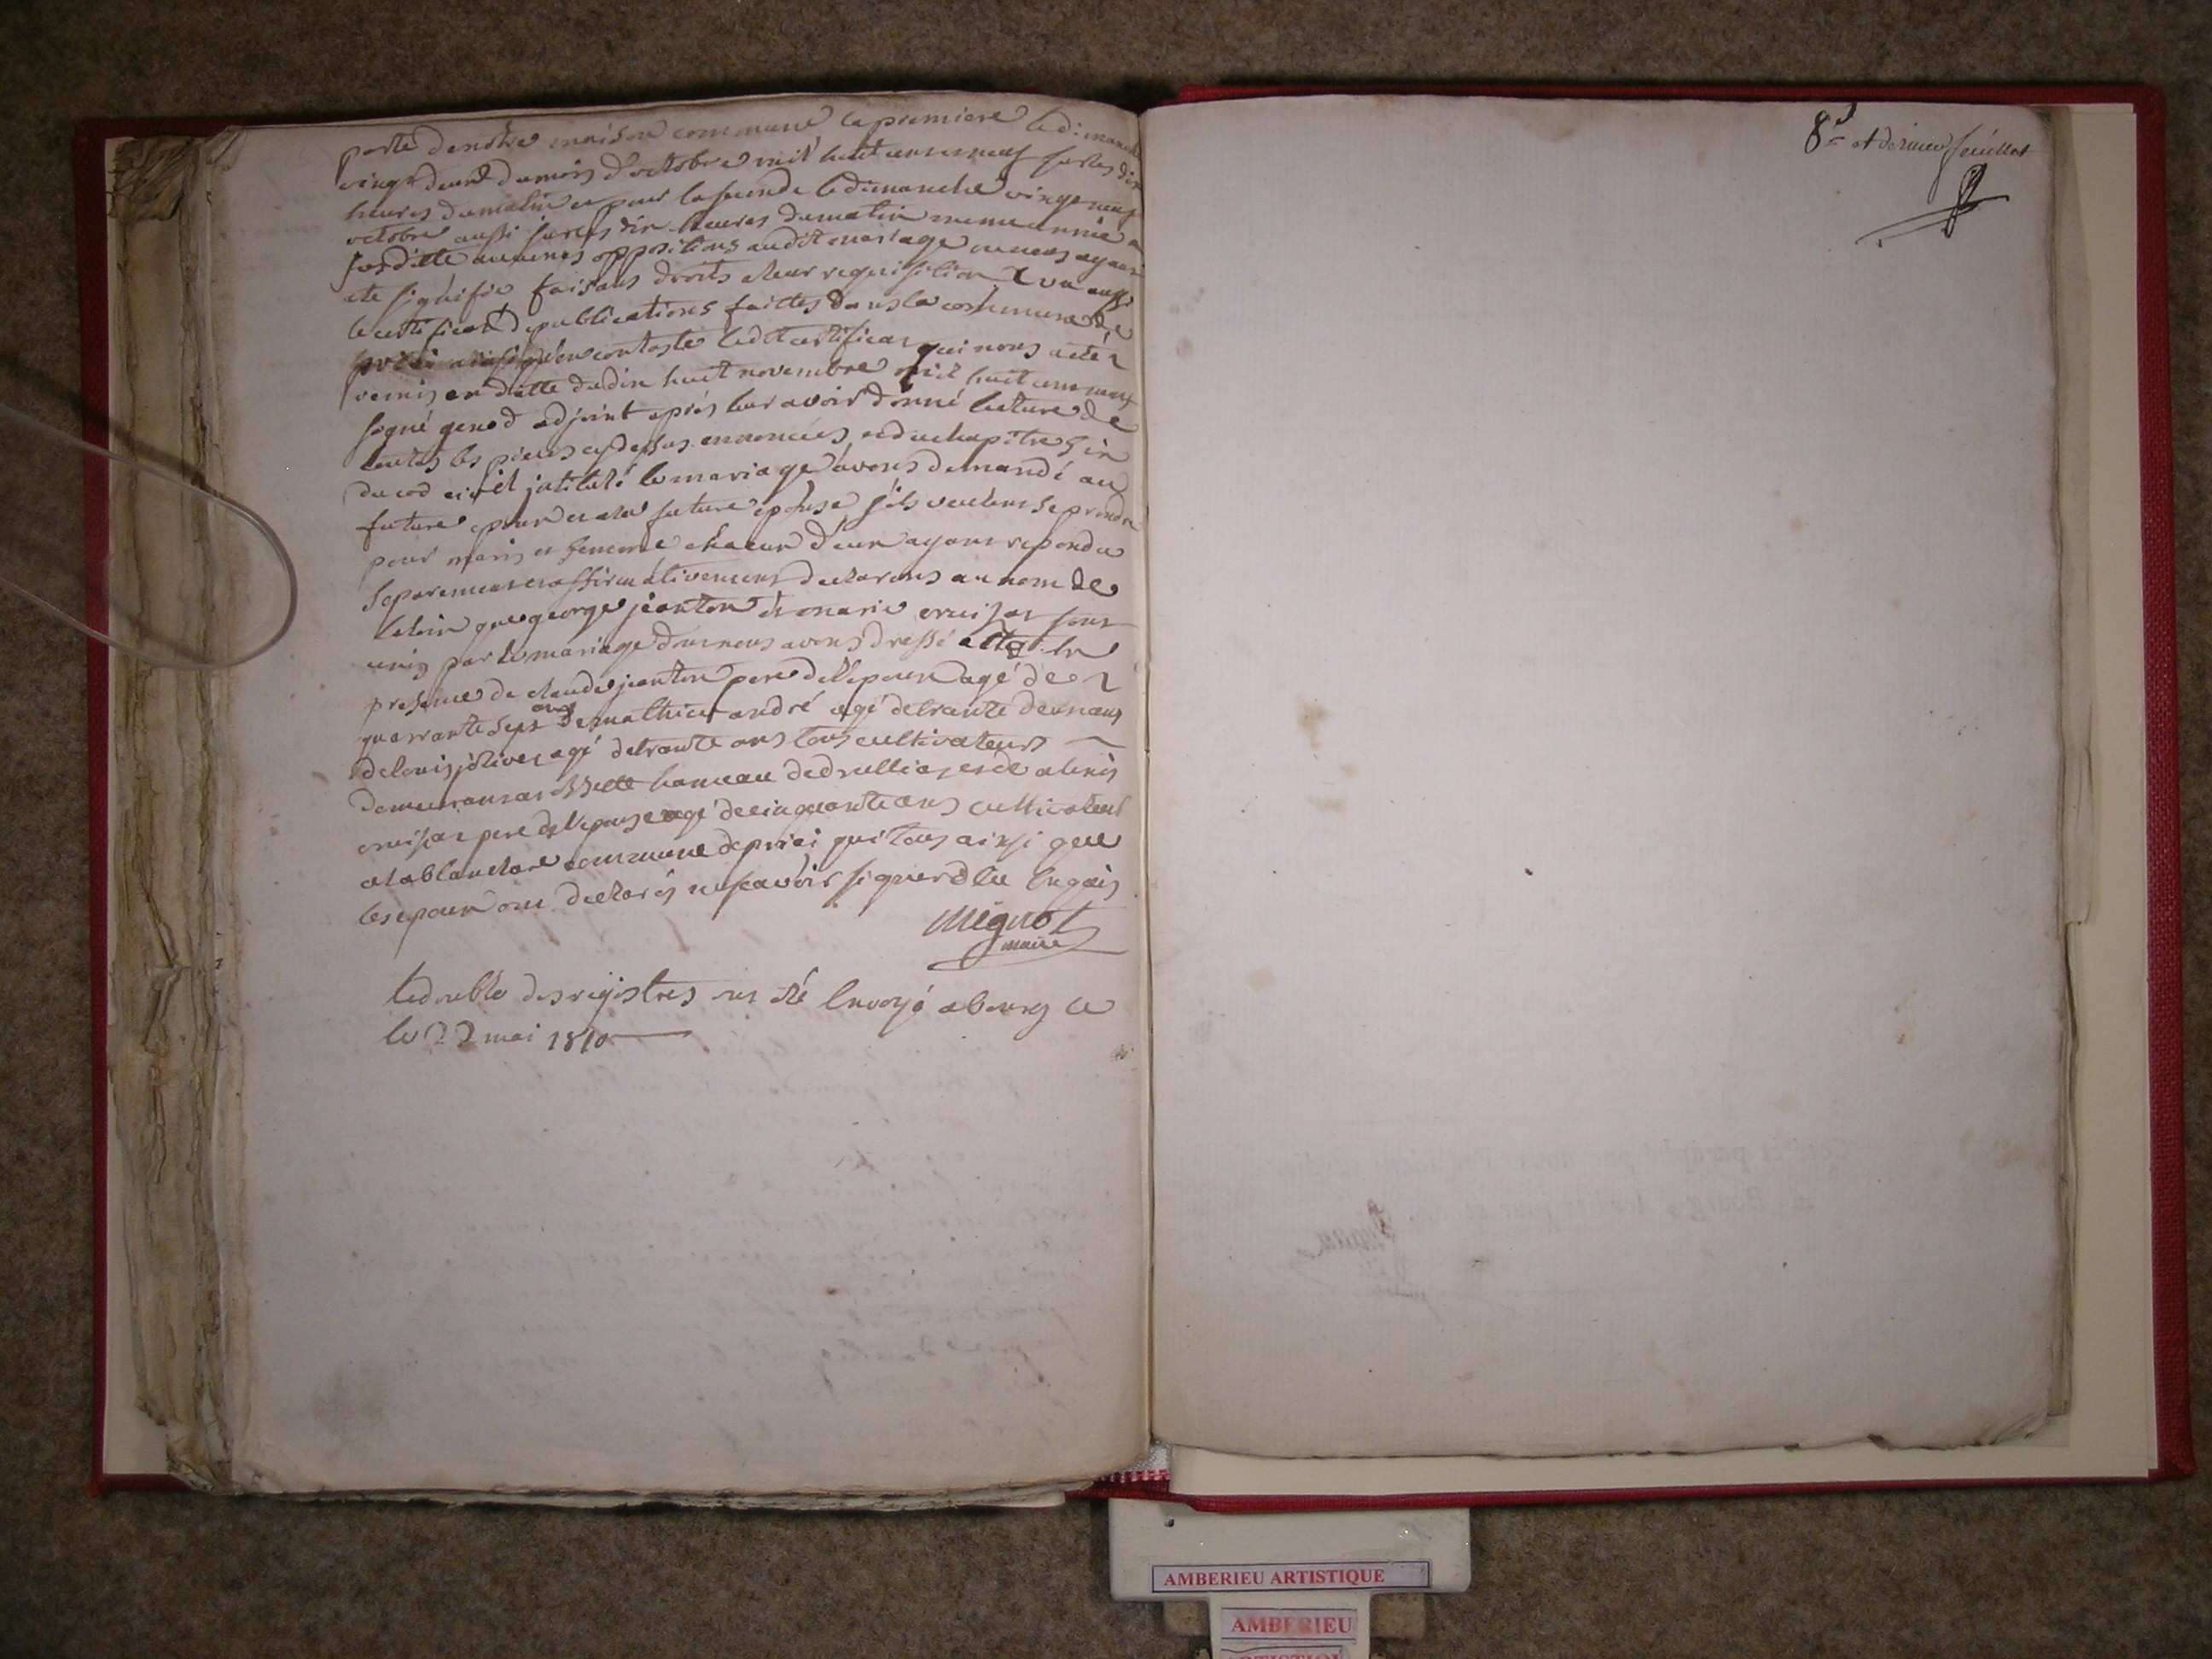 porte denotre maison commune la premiere le dimanche
vingt deux dumois d'octobre mil huit cens neuf sur les dix
heures dumatin et pour la seconde le dimanche vingt neuf
octobre aussi sur les dix heures dumatin meme année
susditte aucunes oppositions audit mariage ne nous ayant
ete signifié faisant droits aleur requisition vu aussi
le certificat de publications faittes dans la commune de
contaste ledit certificat qui nous a été
remis en datte du dix huit novembre mil huit cens neuf
signé genod adjoint aprés leur avoir donné lecture de
toutes les pieces cydessus enoncées et du chapitre six
du cod civil jntitulé le mariage avons demandé au
future epoux et ala future epouse s'ils veulent se prendre
pour maris et femme chacun d'eux ayant repondu
separement et affirmativement declarons au nom de
laloix que george jeanton et marie cruisat sont
unis par le mariage dont nous avons dressé acte en
presence de claude jeanton pere del'epoux agé de
quarrante sept ans de mathieu andré agé de trante deux ans
de louis jolivet agé detrante ans tous cultivateurs
demeurans hameau de druilliat et de alexis
cruisat pere del'epouse agé de cinquante ans cultivateur
alablanchere commune depriai qui tous ainsi que
les epoux ont declarés ne scavoir signer de ce enquis
Mignot
maire
le double des registres est été envoyé a bourg le
le 22 mai 1810
8e et dernier feuillet
AMBERIEU ARTISTIQUE
AMBERIEU
ARTISTIQUE